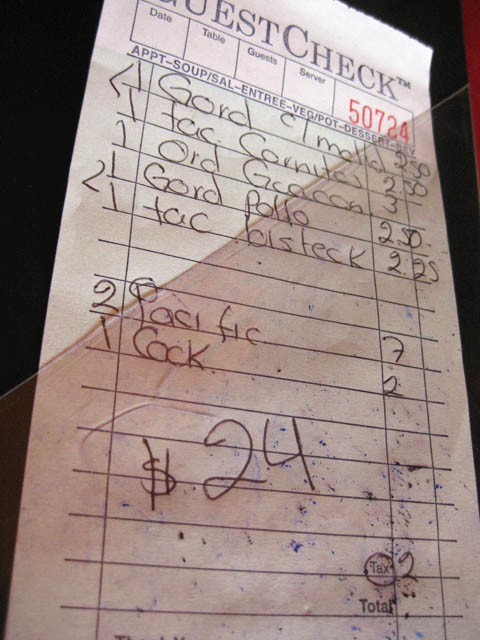 GUESTCHECK™
Date Table Guests Server
50724
APPT-SOUP/SAL-ENTREE-VEG/POT-DESSERT-BEV
1 Gord c/molla 2 50
1 tac. Carnitas 2
1 Ord Guacan. 3
1 Gord Pollo 2 50.
1 tac bisteck 2.25
2 Pacific 7
1 Cock. 2
$ 24
Tax 2
Total